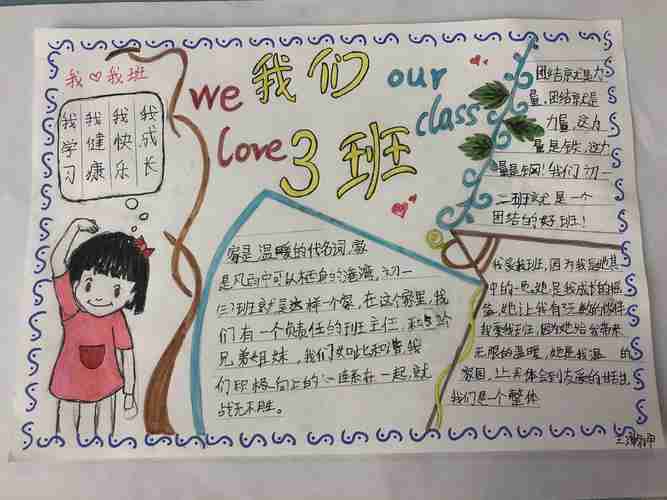 我♡我班
我学习
我健康
我快乐
我成长
we 我们 our
love 3班 class
团结就是力
量,团结就是
力量,这力
量是铁,这力
量是钢!我们初一
二班就是一个
团结的好班!
家是温暖的代名词,家
是风雨中可以栖息的港湾,初一
(三)班就是这样一个家,在这个家里,我
们有一个负责任的班主任,和
兄弟姐妹,我们如此和谐,我
们积极向上的心连系在一起,就
战无不胜。
我爱我班,因为我是她其
中的一员,她是我成长的摇
篮,她让我有了玩耍的伙伴
我爱我班,因为她给我带来
无限的温暖,她是我温 的
家园,让我体会到友爱的
我们是个整体